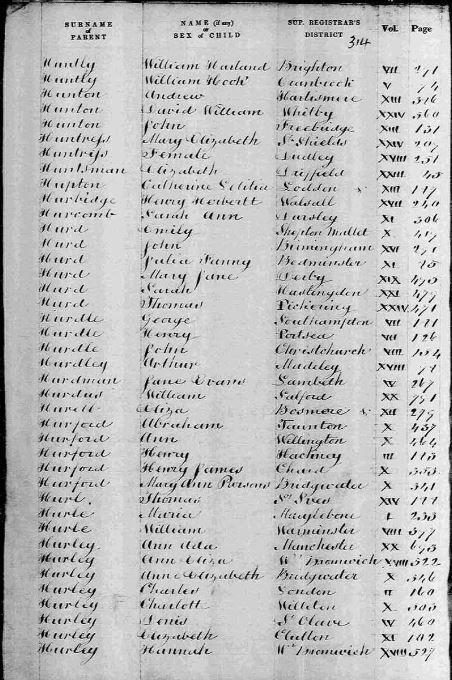 SURNAME of PARENT NAME (if any) or SEX of CHILD SUP. REGISTRAR'S DISTRICT Vol. Page
314
Huntly William Harland Brighton VII 271
Huntly William Hook Cranbrook V 74
Hunton Andrew Hartismere XIII 316
Hunton David William Whitby XXIV 560
Hunton John Freebridge XIII 131
Huntress Mary Elizabeth So Shields XXIV 207
Huntriss Female Dudley XVIII 251
Huntsman Elizabeth Driffield XXIII 45
Hupton Catherine Letitia Loddon XIII 147
Hurbidge Henry Herbert Walsall XVII 240
Hurcomb Sarah Ann Dursley XI 306
Hurd Emily Shepton Mallet X 417
Hurd John Birmingham XVI 271
Hurd Julia Fanny Bedminster XI 75
Hurd Mary Jane Derby XIX 473
Hurd Sarah Haslingden XXI 477
Hurd Thomas Pickering XXIV 471
Hurdle George Southampton VII 141
Hurdle Henry Portsea VII 126
Hurdle John Christchurch VIII 134
Hurdley Arthur Madeley XVIII 71
Hurdman Jane Evans Lambeth IV 267
Hurdus William Salford XX 751
Hurell Eliza Bosmere XII 279
Hurford Abraham Taunton X 457
Hurford Ann Wellington X 464
Hurford Henry Hackney III 113
Hurford Henry James Chard X 353
Hurford Mary Ann Parsons Bridgwater X 341
Hurl. Thomas St Ives XIV 111
Hurle Maria Marylebone I 233
Hurle William Warminster VIII 317
Hurley Ann Ada Manchester XX 673
Hurley Ann Eliza Wt Bromwich XVIII 522
Hurley Anne Elizabeth Bridgwater X 346
Hurley Charles London II 160
Hurley Charlott Williton X 503
Hurley Denis St Olave IV 460
Hurley Elizabeth Clutton XI 102
Hurley Hannah Wt Bromwich XVIII 527